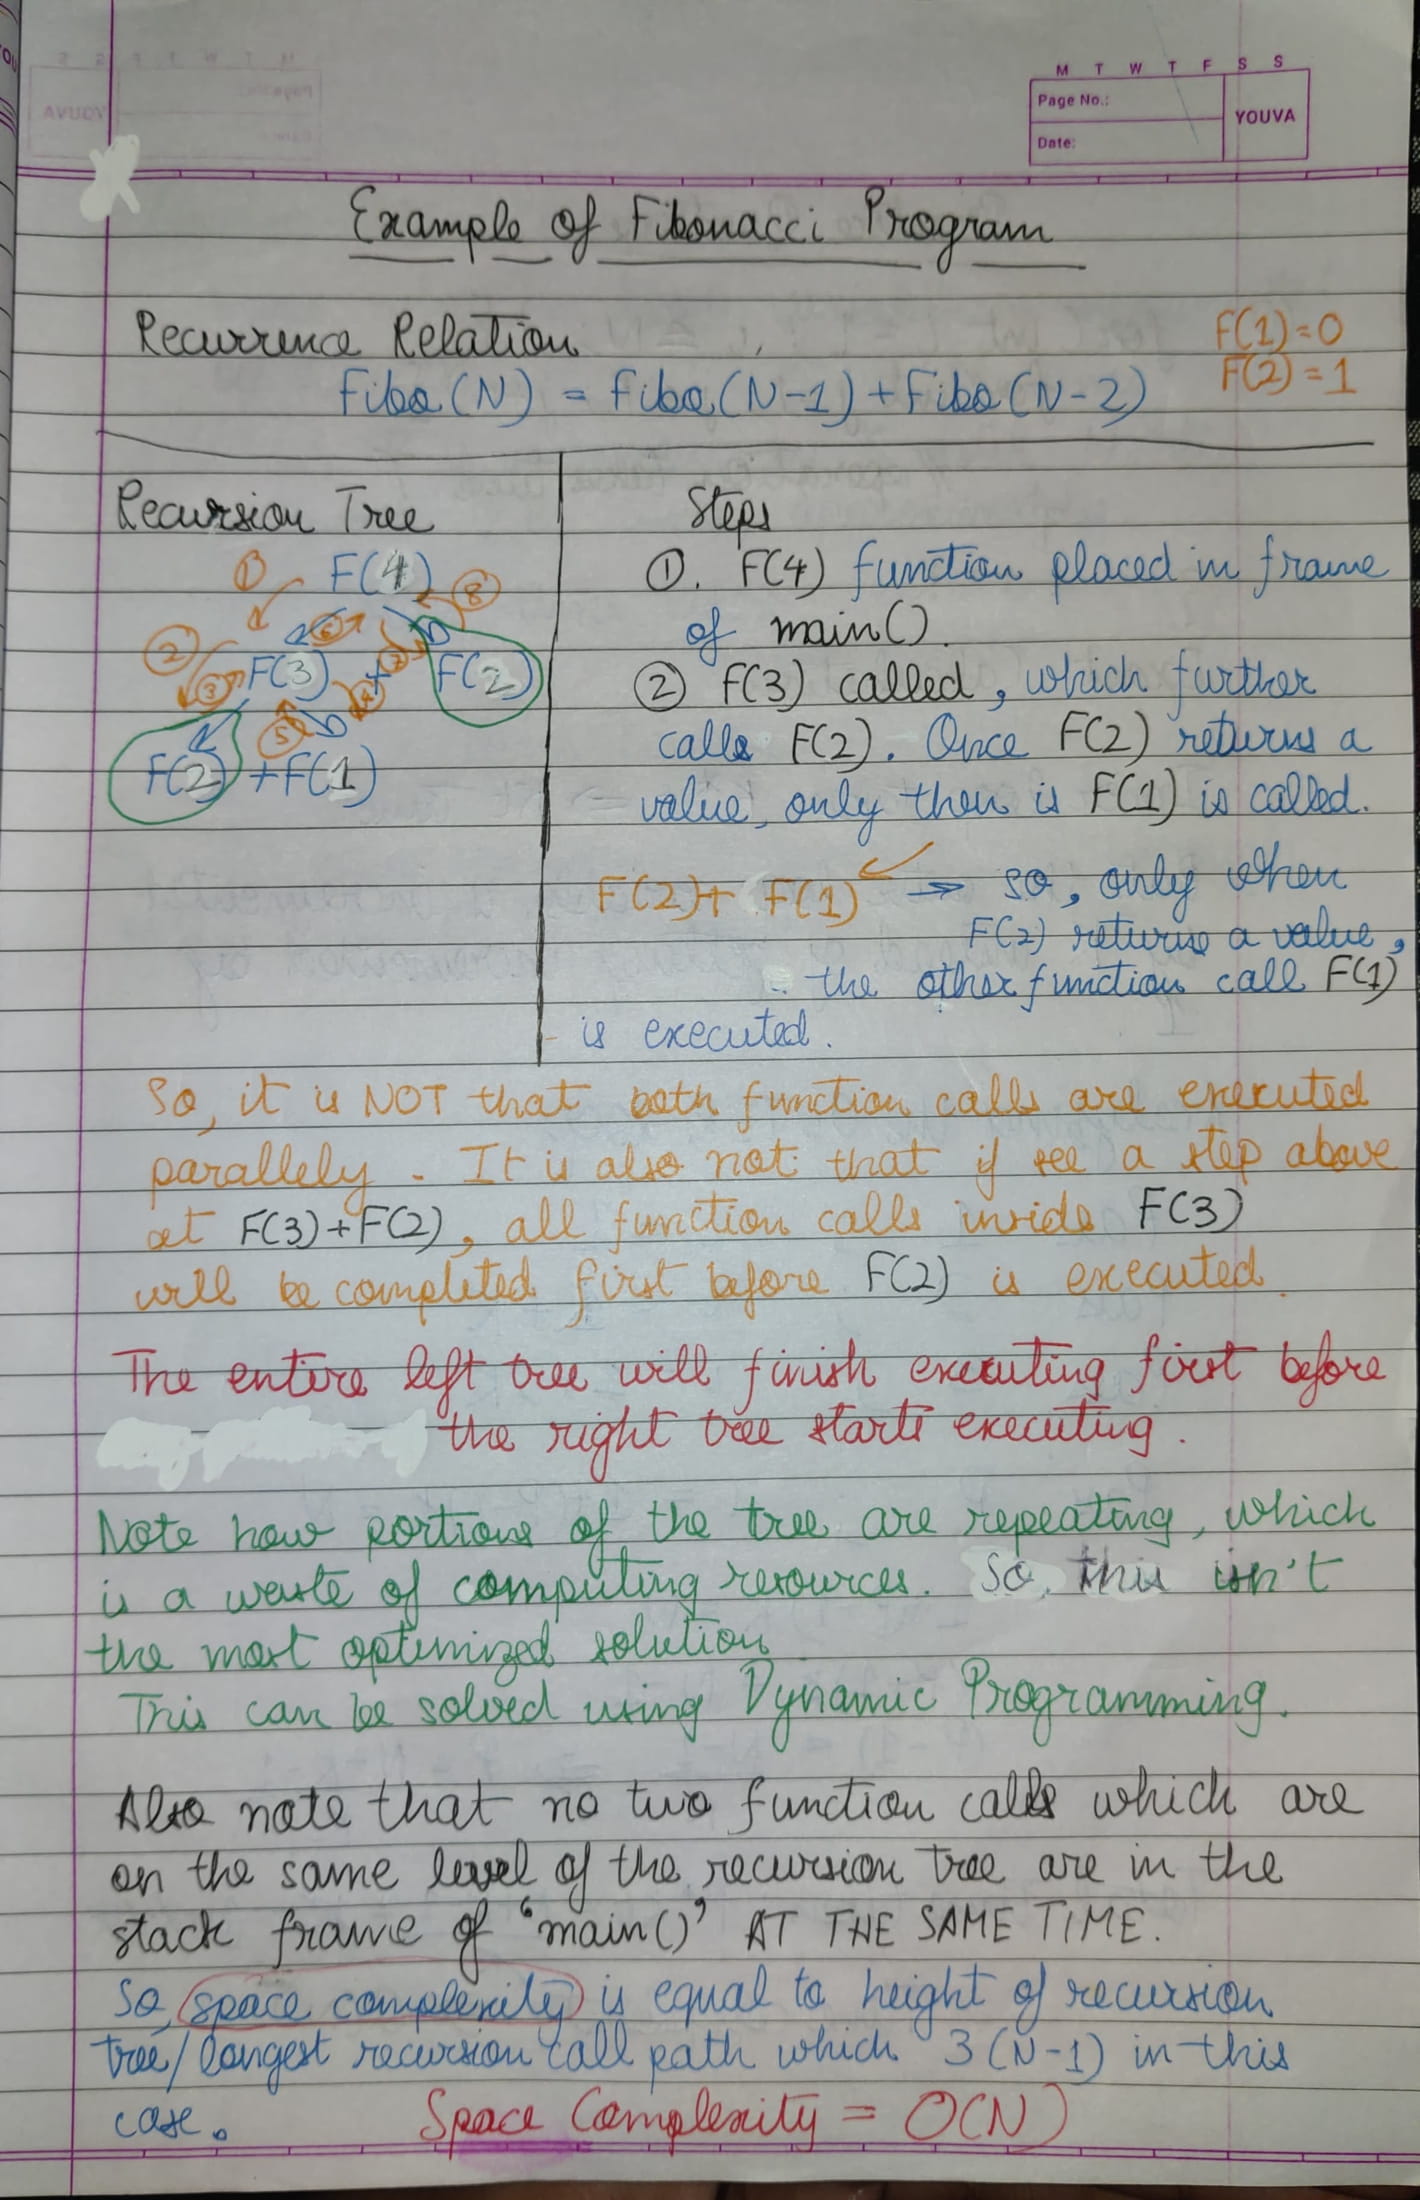 M T W T F S S
Page No.:
YOUVA
Date:
Example of Fibonacci Program
Recurrence Relation
F(1)=0
F(2)=1
Fibo(N) = Fibo(N-1)+Fibo(N-2)
Recursion Tree
① F(4) ⑧
② ⑥
③ F(3) + ⑦ F(2)
⑤ ④
F(2) +F(1)
Steps
①. F(4) function placed in frame
of main().
② F(3) called, which further
calls F(2). Once F(2) returns a
value, only then is F(1) is called.
F(2)+ F(1) → so, only when
F(2) returns a value,
the other function call F(1)
is executed.
So, it is NOT that both function calls are executed
parallely. It is also not that if see a step above
at F(3)+F(2), all function calls inside F(3)
will be completed first before F(2) is executed.
The entire left tree will finish executing first before
the right tree starts executing.
Note how portions of the tree are repeating, which
is a waste of computing resources. So, this isn't
the most optimized solution
This can be solved using Dynamic Programming.
Also note that no two function calls which are
on the same level of the recursion tree are in the
stack frame of 'main()' AT THE SAME TIME.
So, space complexity is equal to height of recursion
tree/longest recursion call path which 3(N-1) in this
case.
Space Complexity = O(N)